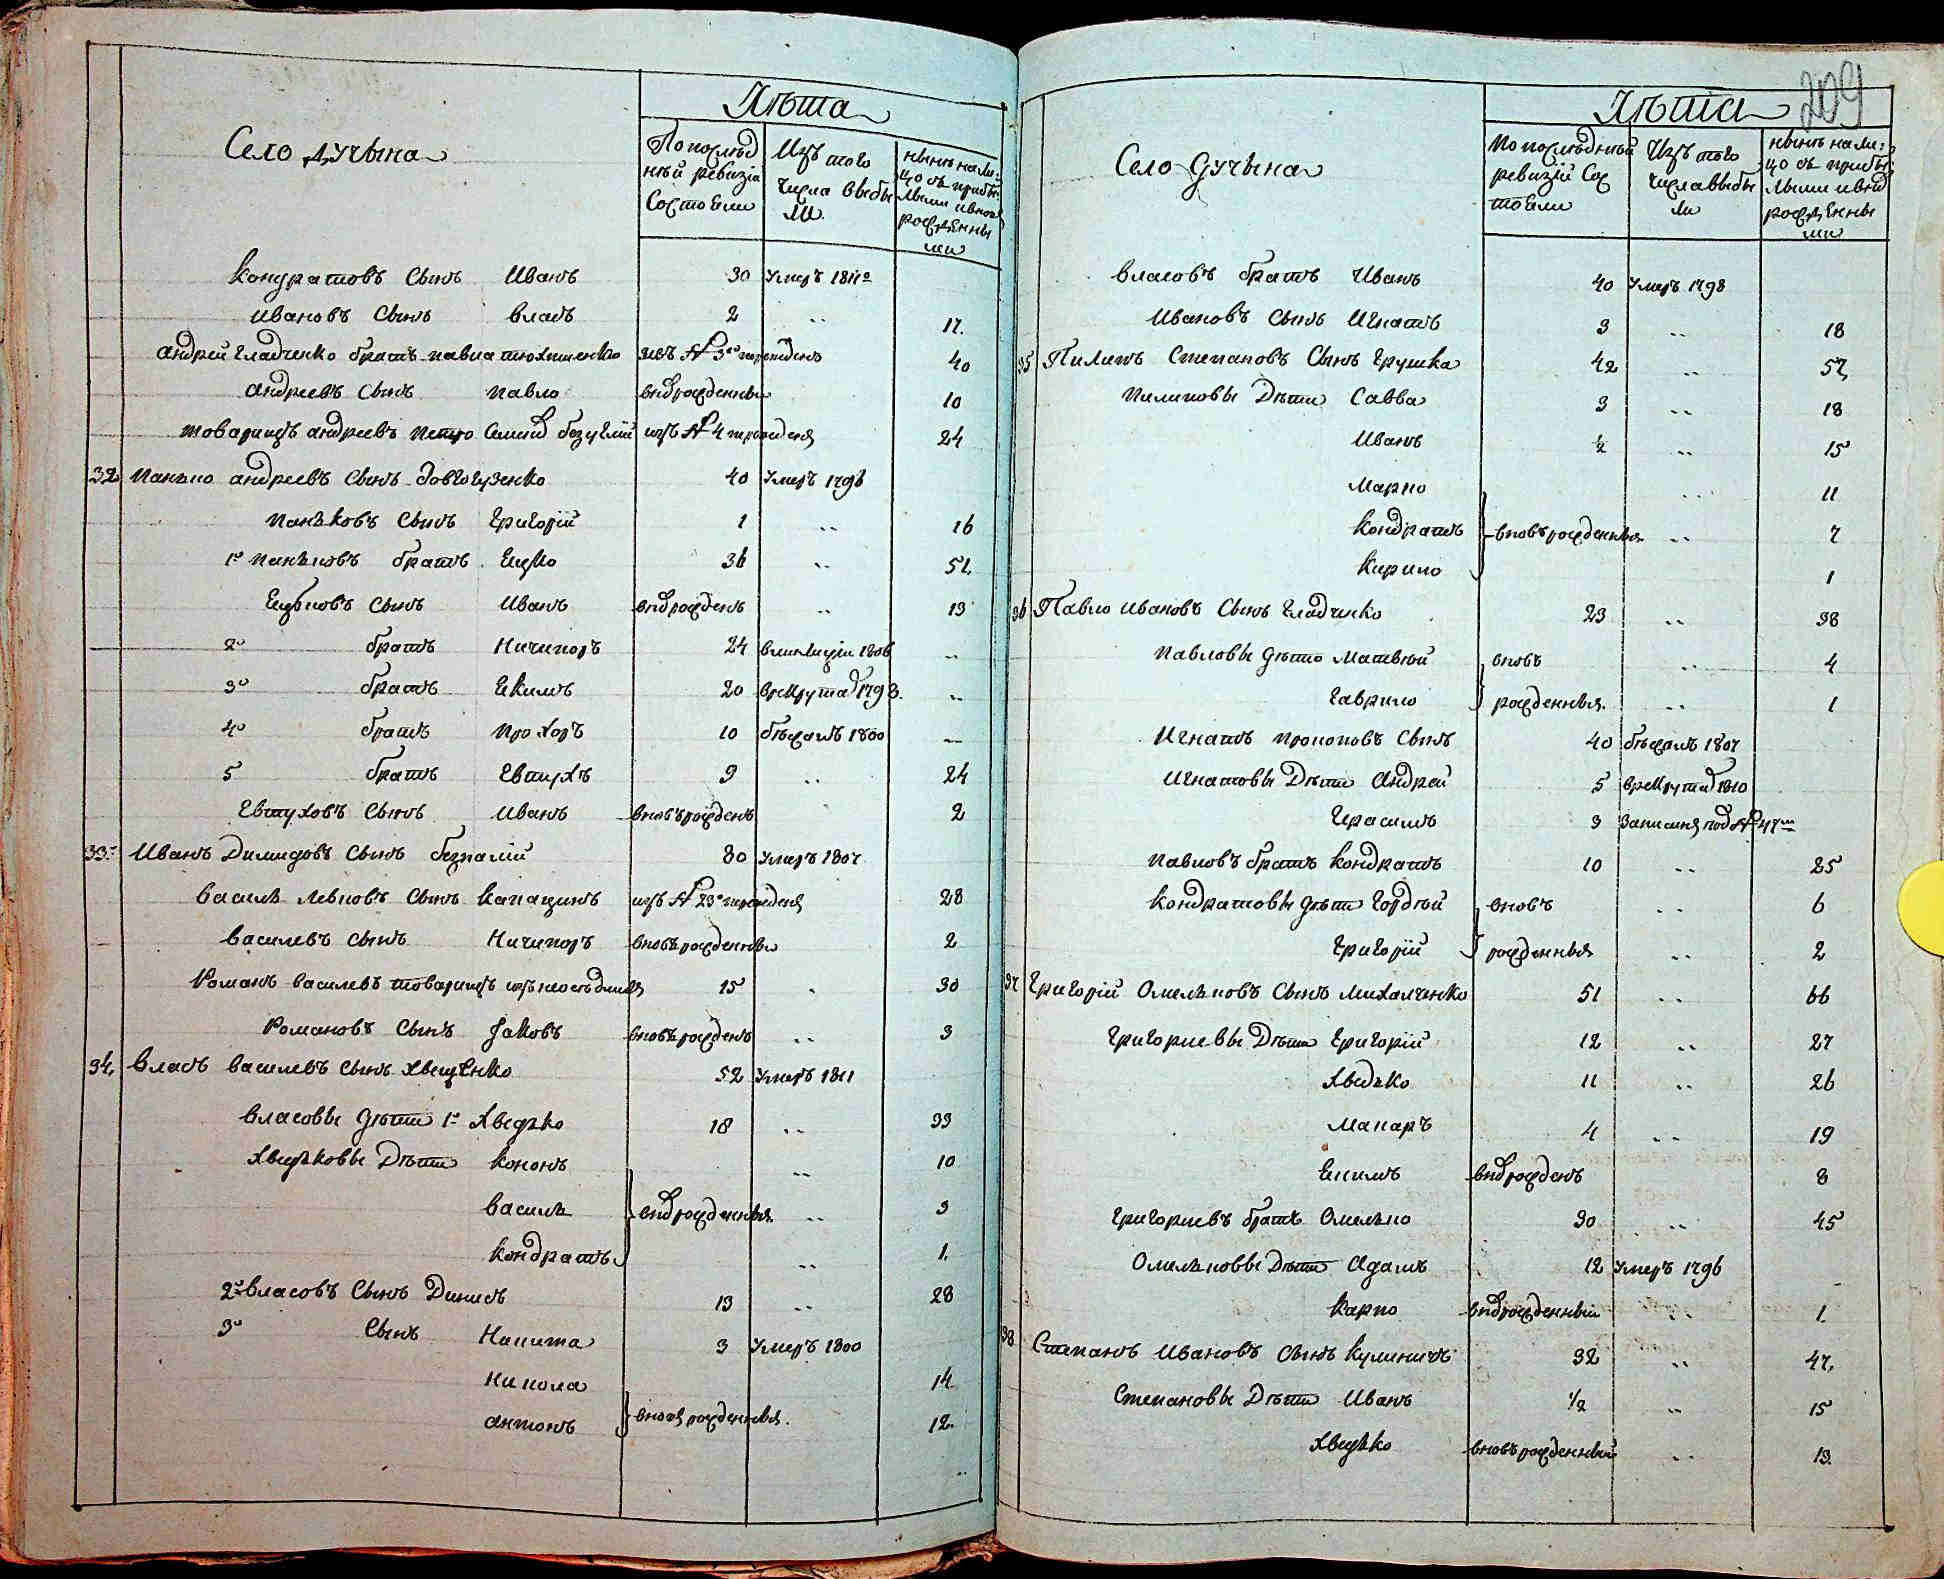 Лѣта
Село Дучина
По послѣд
нѣй ревизіи
Состоели
Изъ того
числа выбы
ли
нынѣ на ли:
цо съ прибы
лыми и вновъ
рожденны
ми
кондратовъ Сынъ Иванъ 30 Умеръ 1811го
Ивановъ Сынъ власъ 2 .. 17.
андрей гладченко братъ павла изъ № 3го переведенъ 40
андреевъ Сынъ павло вновъ рожденный 10
товарищъ андреевъ петро изъ № 4 переведенъ 24
32 панько андреевъ Сынъ 40 Умеръ 1796
паньковъ Сынъ Григорій 1 .. 16
1й паньковъ братъ Ецко 36 .. 51.
Ецьковъ Сынъ Иванъ вновъ рожденъ .. 13
2й братъ Ничипоръ 24 в милицію 1806 ..
3й братъ Екимъ 20 в рекрута 1798. ..
4й братъ прохоръ 10 бѣжалъ 1800 ..
5 братъ Евтухъ 9 .. 24
Евтуховъ Сынъ Иванъ вновъ рожденъ 2
33й Иванъ Демидовъ Сынъ безпалій 80 Умеръ 1807
василь левковъ Сынъ изъ № 23го переведенъ 28
василевъ Сынъ Ничипоръ вновъ рожденный 2
Романъ василевъ товарищъ 15 . 30
Романовъ Сынъ Яковъ вновъ рожденъ .. 3
34. власъ василевъ Сынъ хвещенко 52 Умеръ 1811
власовы дѣти 1й Хведько 18 .. 33
Хведьковы Дѣти кононъ .. 10
василь вновъ рожденныя .. 3
кондратъ .. 1.
2й власовъ Сынъ Динисъ 13 .. 28
3й Сынъ Никита 3 Умеръ 1800
Никола 14
антонъ вновъ рожденныя. 12.
209
Лѣта
Село Дучина
По послѣдней
ревизіи Сос
тоели
Изъ того
числа выбы
ли
нынѣ на ли:
цо съ прибы
лыми и внов
рожденны
ми
власовъ братъ Иванъ 40 Умеръ 1798
Ивановъ Сынъ Игнатъ 3 .. 18
35 Пилипъ Степановъ Сынъ Грушка 42 .. 57,
Пилиповы Дѣти Савва 3 .. 18
Иванъ ½ .. 15
Марко ... 11
кондратъ вновъ рожденныя .. 7
кирило 1
36 Павло Ивановъ Сынъ Гладченко 23 .. 38
Павловы дѣти Матвѣй вновъ .. 4
Гаврило рожденныя. .. 1
Игнатъ прокоповъ Сынъ 40 бѣжалъ 1807
Игнатовы Дѣти Андрей 5 в рекрута 1810
Герасимъ 3 Записанъ под № 47м
Павловъ братъ кондратъ 10 .. 25
кондратовы дѣти Гордѣй вновъ .. 6
Григорій рожденныя .. 2
37 Григорій Омельковъ Сынъ Михальченко 51 .. 66
Григориевы Дѣти Григорій 12 .. 27
Хведько 11 .. 26
Макаръ 4 ... 19
Екимъ вновъ рожденъ 8
Григориевъ братъ Омелько 30 .. 45
Омельковы Дѣти Адамъ 12 Умеръ 1796
карпо вновъ рожденный .. 1.
38 Степанъ Ивановъ Сынъ куличичъ 32 .. 47.
Степановы Дѣти Иванъ 1/2 .. 15
Хведько вновъ рожденный .. 13.